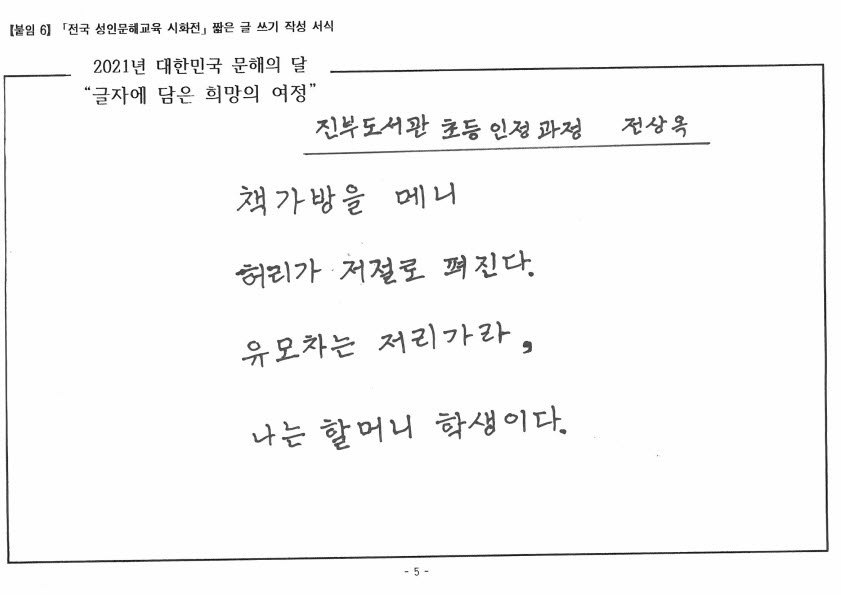 【붙임 6】 「전국 성인문해교육 시화전」 짧은 글 쓰기 작성 서식
2021년 대한민국 문해의 달
“글자에 담은 희망의 여정”
진부도서관 초등인정과정 전상옥
책가방을 메니
허리가 저절로 펴진다.
유모차는 저리가라,
나는 할머니 학생이다.
- 5 -